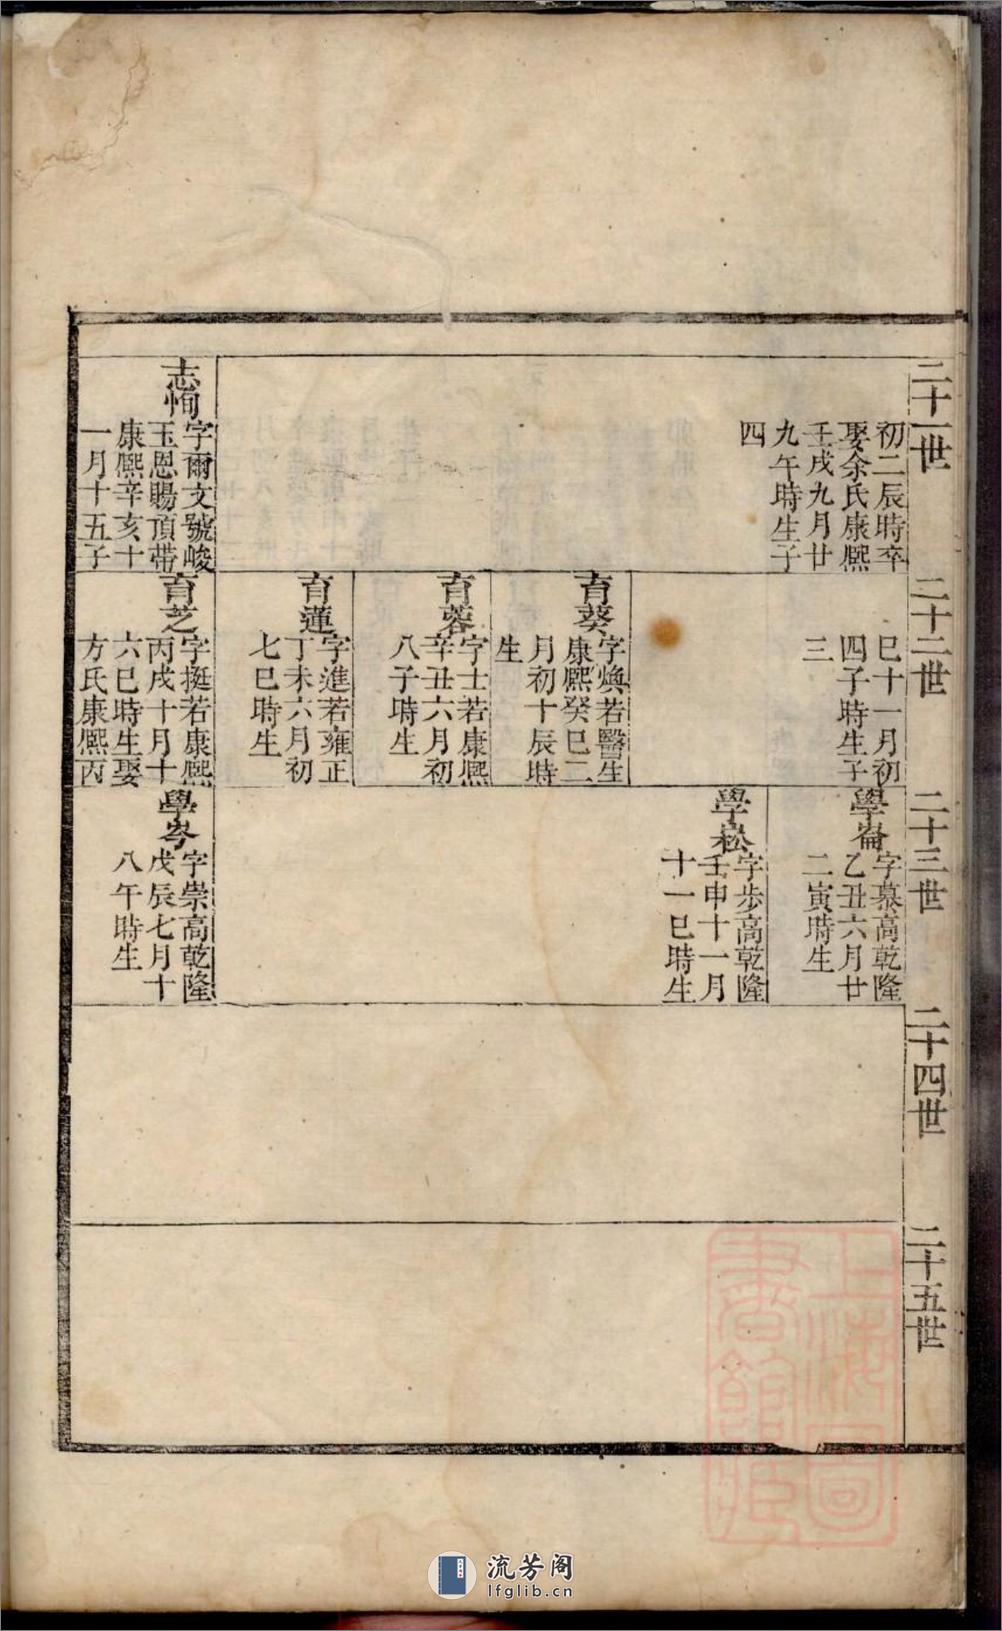 二十一世
初二辰時卒
娶余氏康熙
壬戌九月廿
九午時生子
四
志恂
字爾文號峻
玉恩賜頂帶
康熙辛亥十
一月十五子
二十二世
巳十一月初
四子時生子
三
育葵
字煥若醫生
康熙癸巳二
月初十辰時
生
育蓉
字士若康熙
辛丑六月初
八子時生
育蓮
字進若雍正
丁未六月初
七巳時生
育芝
字挺若康熙
丙戌十月十
六巳時生娶
方氏康熙丙
二十三世
學崙
字慕高乾隆
乙丑六月廿
二寅時生
學崧
字步高乾隆
壬申十一月
十一巳時生
學岑
字崇高乾隆
戊辰七月十
八午時生
二十四世
二十五世
上海圖
書館藏
流芳阁
lfglib.cn